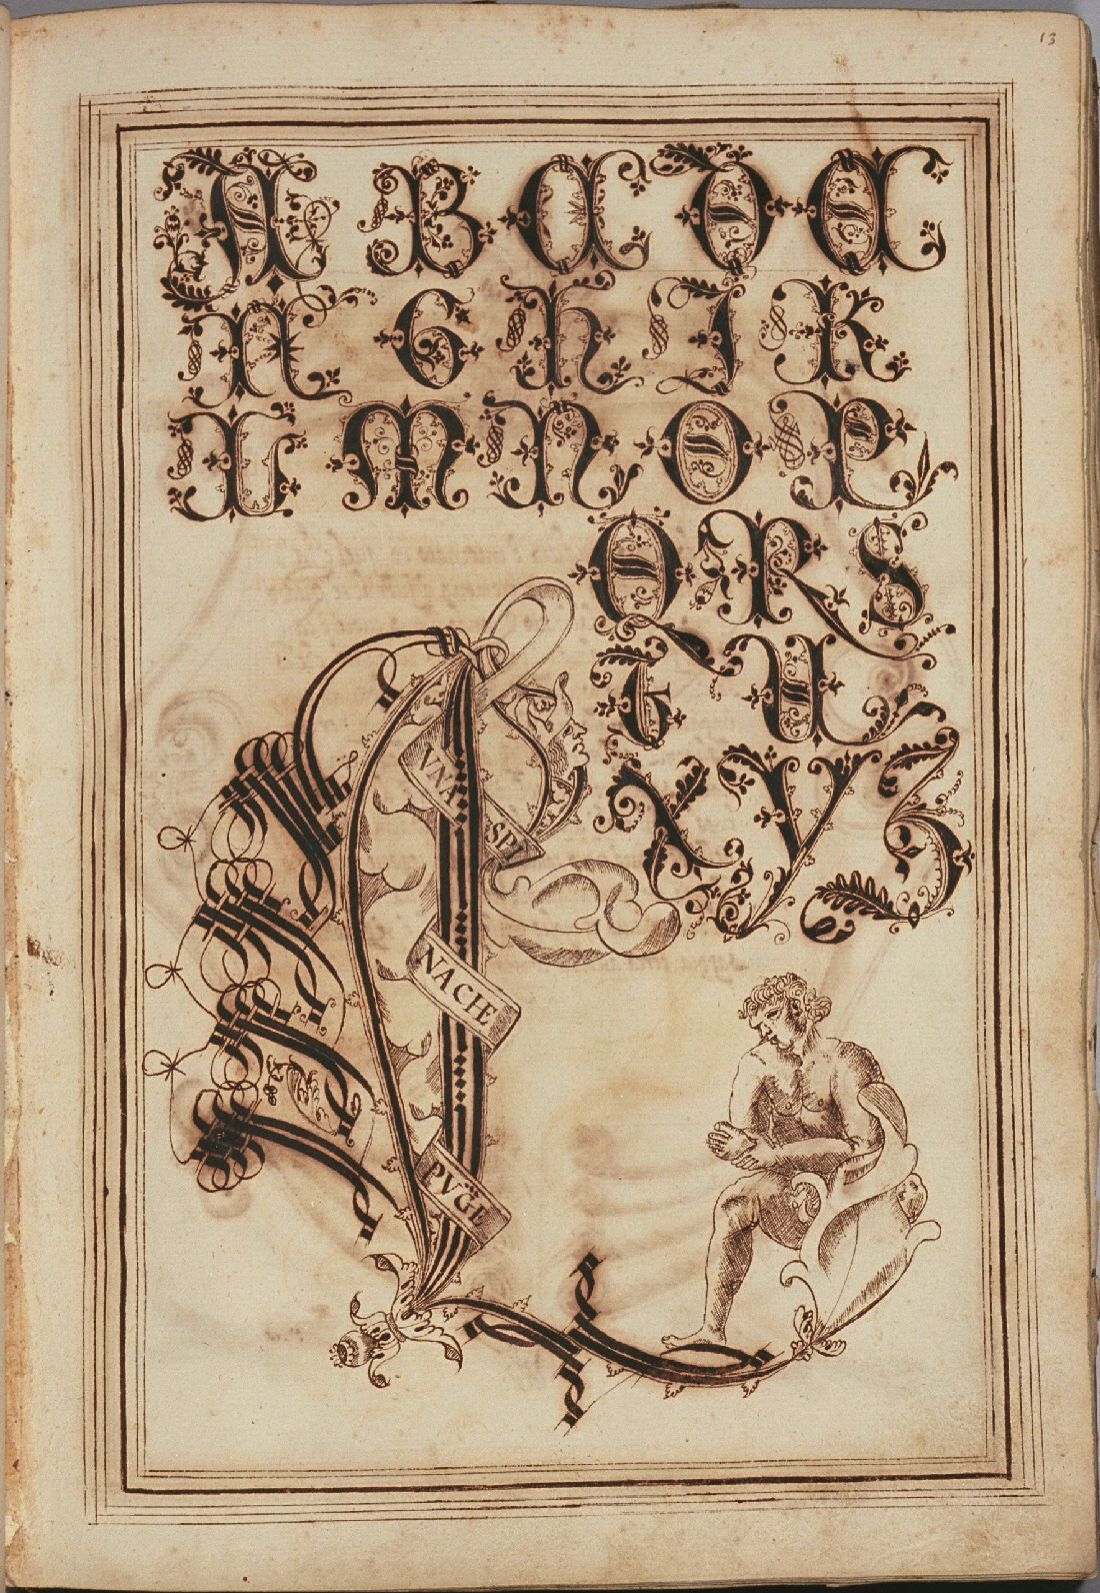 13
A B C D E
F G H I K
L M N O P
Q R S
T U
X Y Z
VNA SPI
NA CHE
PVGE